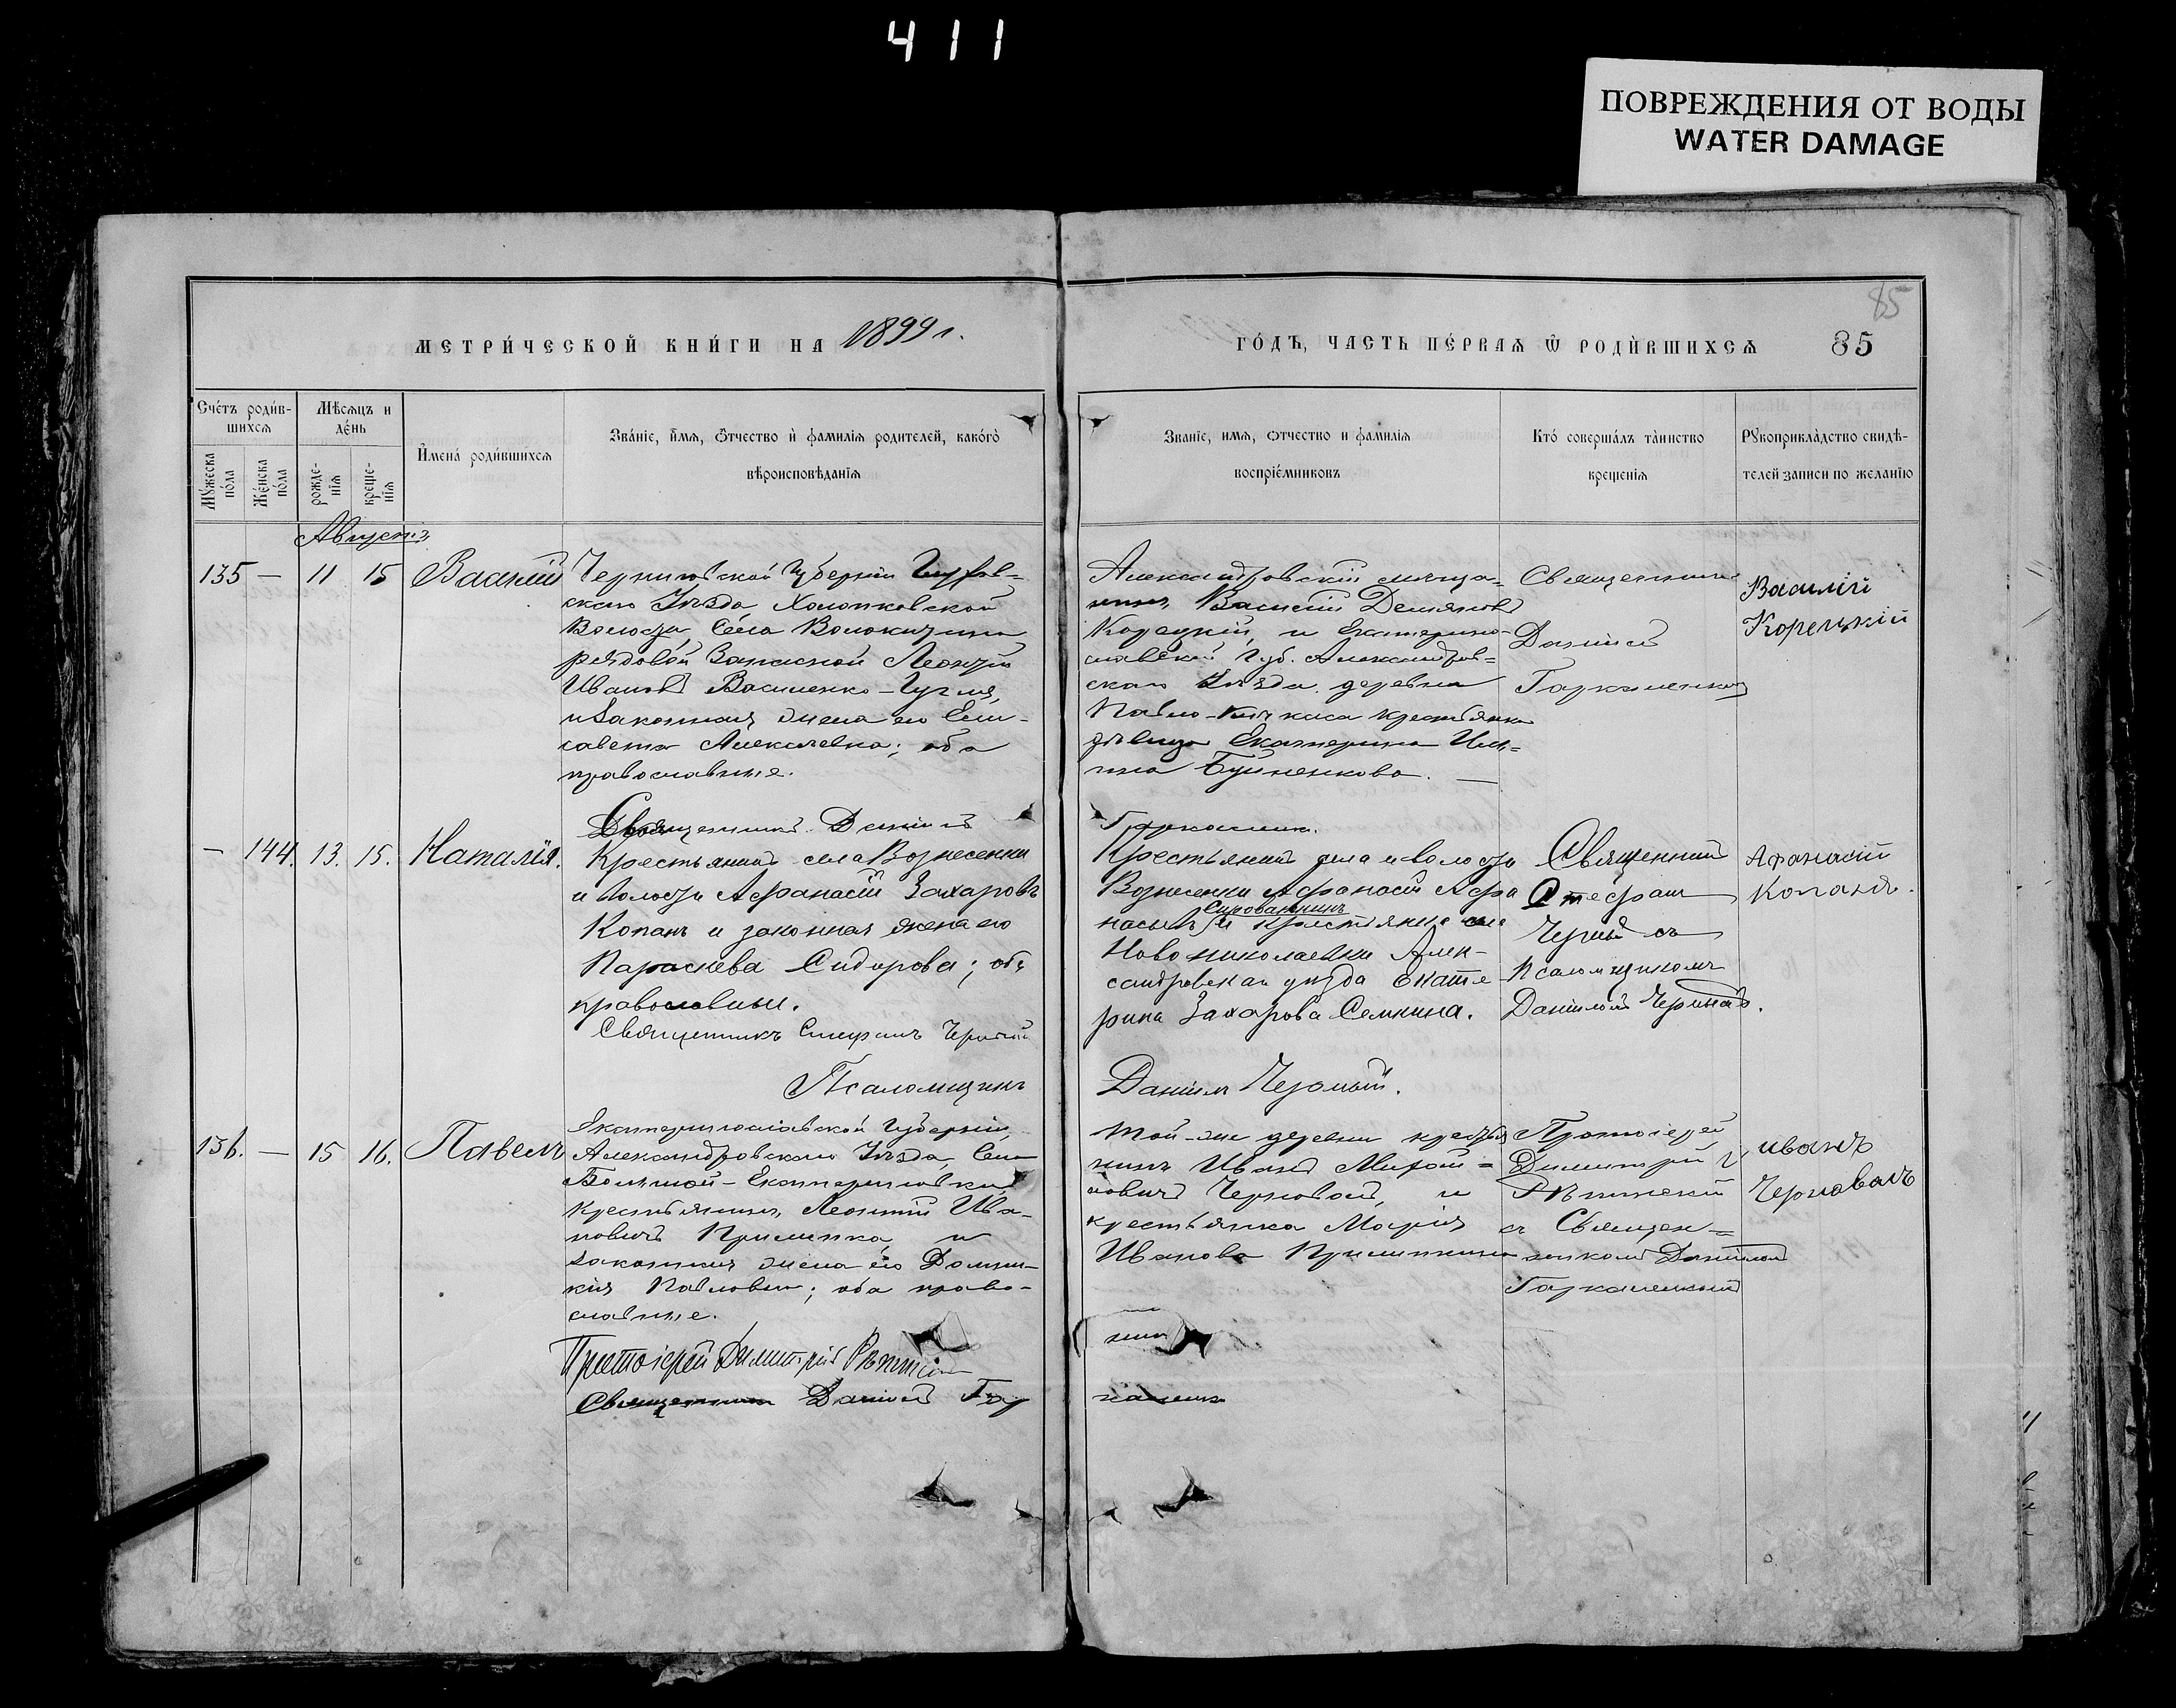 411
ПОВРЕЖДЕНИЯ ОТ ВОДЫ
WATER DAMAGE
85
МЕТРИ́ЧЕСКОЙ КНИ́ГИ НА 1899 г.
ГО́ДЪ, ЧАСТЬ ПЕ́РВАѦ Ѿ РОДИ́ВШИХСѦ 85
Счéтъ роди́в-
шихсѧ
Мѣсѧцъ и
де́нь
Мꙋжеска
по́ла
Же́нска
по́ла
рожде-
ніѧ
креще-
ніѧ
И҆мена́ роди́вшихсѧ
Зва́ніе, и҆́мѧ, ѻ҆́тчество и҆ фамиліѧ родителей, како́гѡ
вѣроисповѣ́даніѧ
Званіе, имѧ, ѻтчество и фамиліѧ
воспріе́мниковъ
Кто́ соверша́лъ та́инство
крещеніѧ
Рꙋкоприкла́дство свидѣ-
телей записи по желанію
Августъ
135 — 11 15 Василій
Черниговской Губерніи
скаго Уѣзда, Холопковской
Волости, Села Волокитина
рядовой запасной Леонтій
Ивановъ Василенко-
и законная жена его Ели-
савета Алексѣевна; оба
православные.
Священникъ Даніилъ
Александровскій мѣща-
нинъ Василій Демяновъ
Корецкій, и Екатерино-
славской Губ. Александров-
скаго Уѣзда деревни
Павло-Кичкаса крестьянка
дѣвица Екатерина
Гаркаленко.
Священникъ
Даніилъ
Василій
Корецкій
— 144. 13. 15. Наталія.
Крестьянинъ села Вознесенки
и волости Афанасій Захаровъ
Копанъ и законная жена его
Параскева Сидорова; оба
православны.
Священникъ Стефанъ Черный
Псаломщикъ
Крестьянинъ села и волости
Вознесенки Афанасій Афа
насьевъ и крестьянка села
Новониколаевки Алек-
сандровскаго уѣзда Екате
рина Захарова Семкина.
Даніилъ Черный.
Священникъ
Стефанъ
Черный съ
Псаломщикомъ
Даніиломъ Чернымъ.
Афанасій
Копанъ.
136. — 15 16. Павелъ
Екатеринославской Губерніи,
Александровскаго Уѣзда, Села
Большой-Екатериновки
крестьянинъ Леонтій Ива-
новичъ Прилипка, и
законная жена его Домни-
кія Павловна; оба право-
славные.
Протоіерей Димитрій
Священникъ Даніилъ Гар
Той-же деревни крестья
нинъ Иванъ Михай-
ловичъ Черновой, и
крестьянка Марія
Иванова Прилипкина
каленко
Протоіерей
Димитрій
съ Священ-
никомъ Даніиломъ
Гаркаленкомъ
иванъ